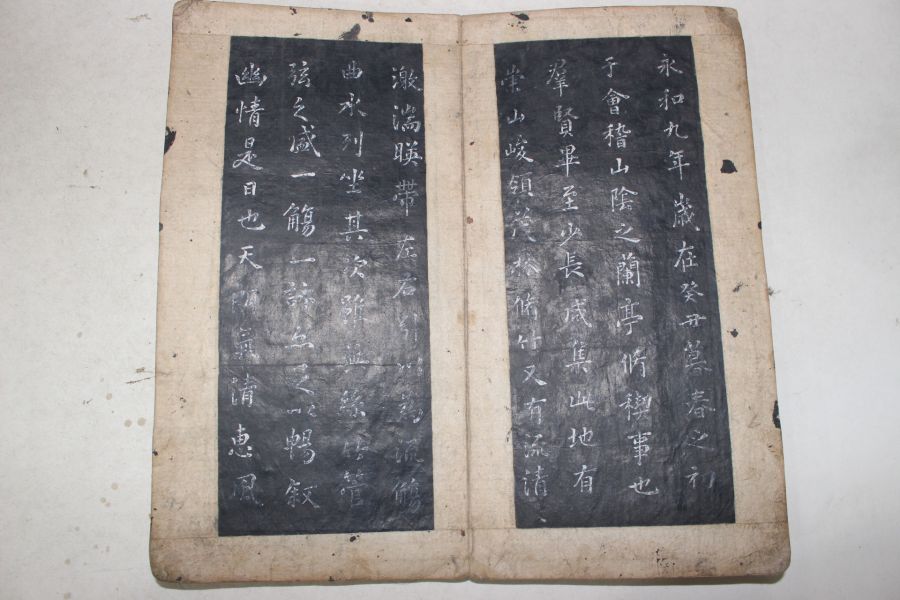 永和九年歲在癸丑暮春之初
于會稽山陰之蘭亭脩稧事也
羣賢畢至少長咸集此地有
崇山峻領茂林脩竹又有流清、
激湍暎帶左右引以為流觴
曲水列坐其次雖無絲竹管
弦之盛一觴一詠亦足以暢叙
幽情是日也天朗氣清惠風